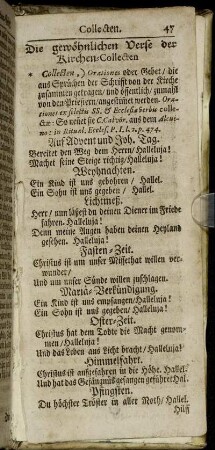 Collecten. 47
Die gewöhnlichen Verse der
Kirchen-Collecten
* Collecten,) Orationes oder Gebet / die
aus Sprüchen der Schrifft von der Kirche
zusammen getragen / und öffentlich / zumahl
von den Priestern / angestimmet werden. Ora-
tiones ex selectis SS. & Ecclesiæ verbis colle-
ctæ: So leitet sie C. Calvör. aus dem Alcui-
no: in Ritual. Eccles. P. I. l. 2. p. 474.
Auf Advent und Joh. Tag.
Bereitet den Weg dem Herrn / Halleluja!
Machet seine Steige richtig / Halleluja!
Weyhnachten.
Ein Kind ist uns gebohren / Hallel.
Ein Sohn ist uns gegeben / Hallel.
Lichtmeß.
Herr / nun lässest du deinen Diener im Friede
fahren. Halleluja!
Denn meine Augen haben deinen Heyland
gesehen. Halleluja!
Fasten-Zeit.
Christus ist um unser Missethat willen ver-
wundet /
Und um unser Sünde willen zuschlagen.
Mariä-Verkündigung.
Ein Kind ist uns empfangen / Halleluja!
Ein Sohn ist uns gegeben / Halleluja!
Oster-Zeit.
Christus hat dem Tode die Macht genom-
men / Halleluja!
Und das Leben ans Licht bracht / Halleluja!
Himmelfahrt.
Christus ist aufgefahren in die Höhe. Hallel.
Und hat das Gefängniß gefangen geführt Hal.
Pfingsten.
Du höchster Tröster in aller Noth / Hallel.
Hilff